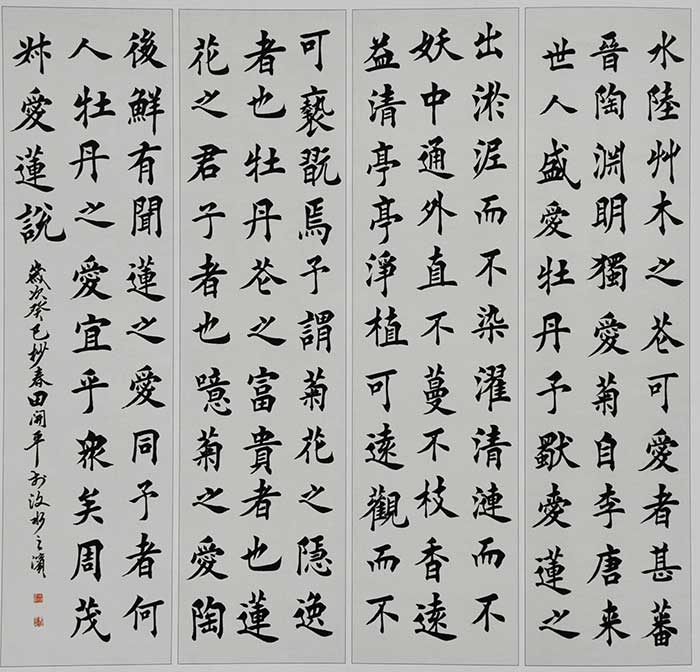 水陸艸木之花可愛者甚蕃
晉陶淵明獨愛菊自李唐来
世人盛愛牡丹予獨愛蓮之
出淤泥而不染濯清漣而不
妖中通外直不蔓不枝香遠
益清亭亭淨植可遠觀而不
可褻翫焉予謂菊花之隱逸
者也牡丹花之富貴者也蓮
花之君子者也噫菊之愛陶
後鮮有聞蓮之愛同予者何
人牡丹之愛宜乎眾矣周茂
叔愛蓮説
歲次癸巳杪春田開平於汶水之濱